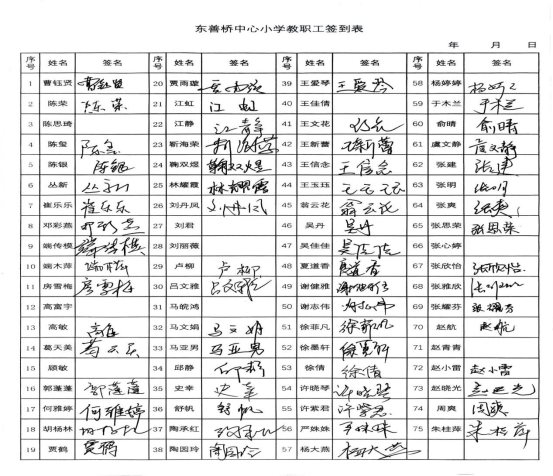 东善桥中心小学教职工签到表
年 月 日
序号 姓名 签名 序号 姓名 签名 序号 姓名 签名 序号 姓名 签名
1 曹钰贤 曹钰贤 20 贾雨璇 39 王爱琴 王爱琴 58 杨婷婷 杨婷婷
2 陈荣 陈荣 21 江虹 江虹 40 王佳倩 59 于木兰 于木兰
3 陈思琦 22 江静 江静 41 王文花 60 俞晴 俞晴
4 陈玺 陈玺 23 靳海荣 42 王新蕾 王新蕾 61 虞文静 虞文静
5 陈银 陈银 24 鞠双煜 鞠双煜 43 王信念 王信念 62 张建 张建
6 丛新 丛新 25 林耀霞 林耀霞 44 王玉珏 63 张明 张明
7 崔乐乐 崔乐乐 26 刘丹凤 刘丹凤 45 翁云花 翁云花 64 张爽 张爽
8 邓彩燕 邓彩燕 27 刘君 46 吴丹 吴丹 65 张思荣 张思荣
9 端传模 端传模 28 刘丽薇 47 吴佳佳 吴佳佳 66 张心婷
10 端木萍 端木萍 29 卢柳 卢柳 48 夏道香 夏道香 67 张欣怡 张欣怡
11 房雪梅 房雪梅 30 吕文雅 吕文雅 49 谢健雅 68 张雅欣
12 高富宇 31 马皖鸿 50 谢志伟 69 张耀芬 张耀芬
13 高敏 高敏 32 马文娟 马文娟 51 徐菲凡 徐菲凡 70 赵航 赵航
14 葛天美 葛天美 33 马亚男 马亚男 52 徐墨轩 徐墨轩 71 赵青青
15 顾敏 34 邱静 邱静 53 徐倩 徐倩 72 赵小雷 赵小雷
16 郭蓬蓬 郭蓬蓬 35 史幸 史幸 54 许晓琴 许晓琴 73 赵晓光 赵晓光
17 何雅婷 何雅婷 36 舒帆 舒帆 55 许紫君 许紫君 74 周爽 周爽
18 胡杨林 37 陶承红 56 严姝姝 75 朱桂萍 朱桂萍
19 贾鹤 贾鹤 38 陶园玲 陶园玲 57 杨大燕 杨大燕